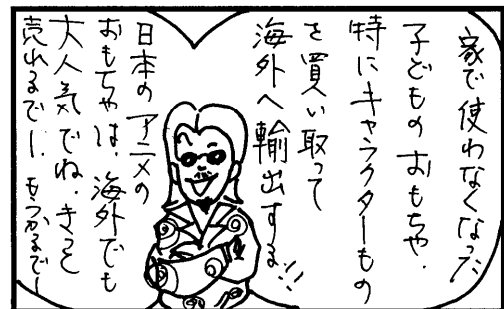 家で使わなくなった
子どものおもちゃ.
特にキャラクターもの
を買い取って
海外へ輸出する!!
日本のアニメの
おもちゃは、海外でも
大人気でね.きっと
売れるでー.もうかるでー